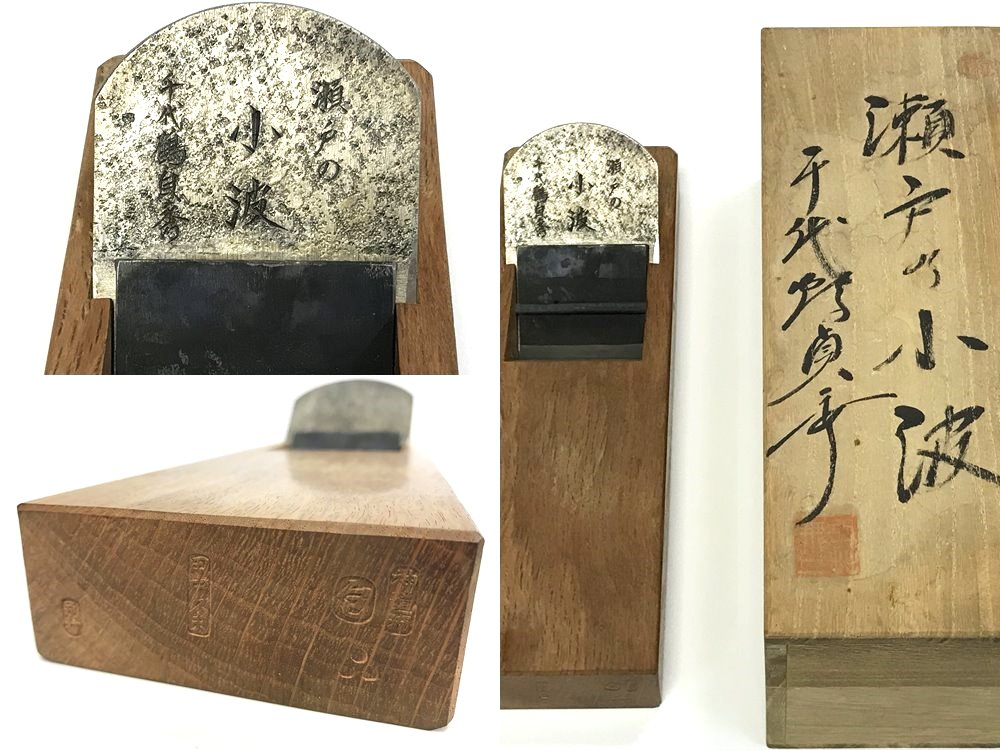 瀬戸の
小波
千代鶴貞秀
瀬戸の
小波
千代鶴貞秀
瀬戸の小波
千代鶴貞秀